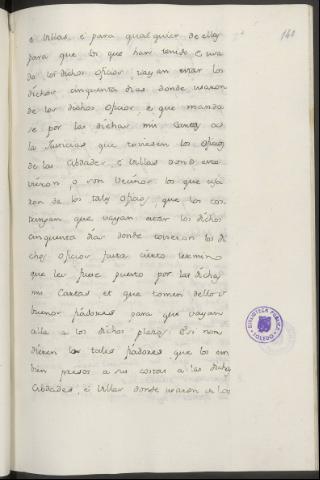 160
e Villas, e para qualquier de ellos
para que los que han tenido e usa
do los dichos oficios, vayan estar los
dichos cinquenta dias donde usaron
de los dichos oficios, e que manda
se por las dichas mis Cartas a
las Justicias que tuviesen los oficios
de las Cibdades, e Villas donde
vieron, o son vecinos los que usa
ron de los tales oficios, que los cos
tringan que vayan estar los dichos
cinquenta dias donde tovieron los di
chos oficios fasta cierto termino
que les fuese puesto por las dichas
mis Cartas, et que tomen dello
buenos fiadores para que vayan
alla a los dichos plazos E si non
dieren los tales fiadores que los em
bien presos a sus costas a las dichas
Cibdades, e Villas donde usaron de los
BIBLIOTECA PUBLICA
TOLEDO